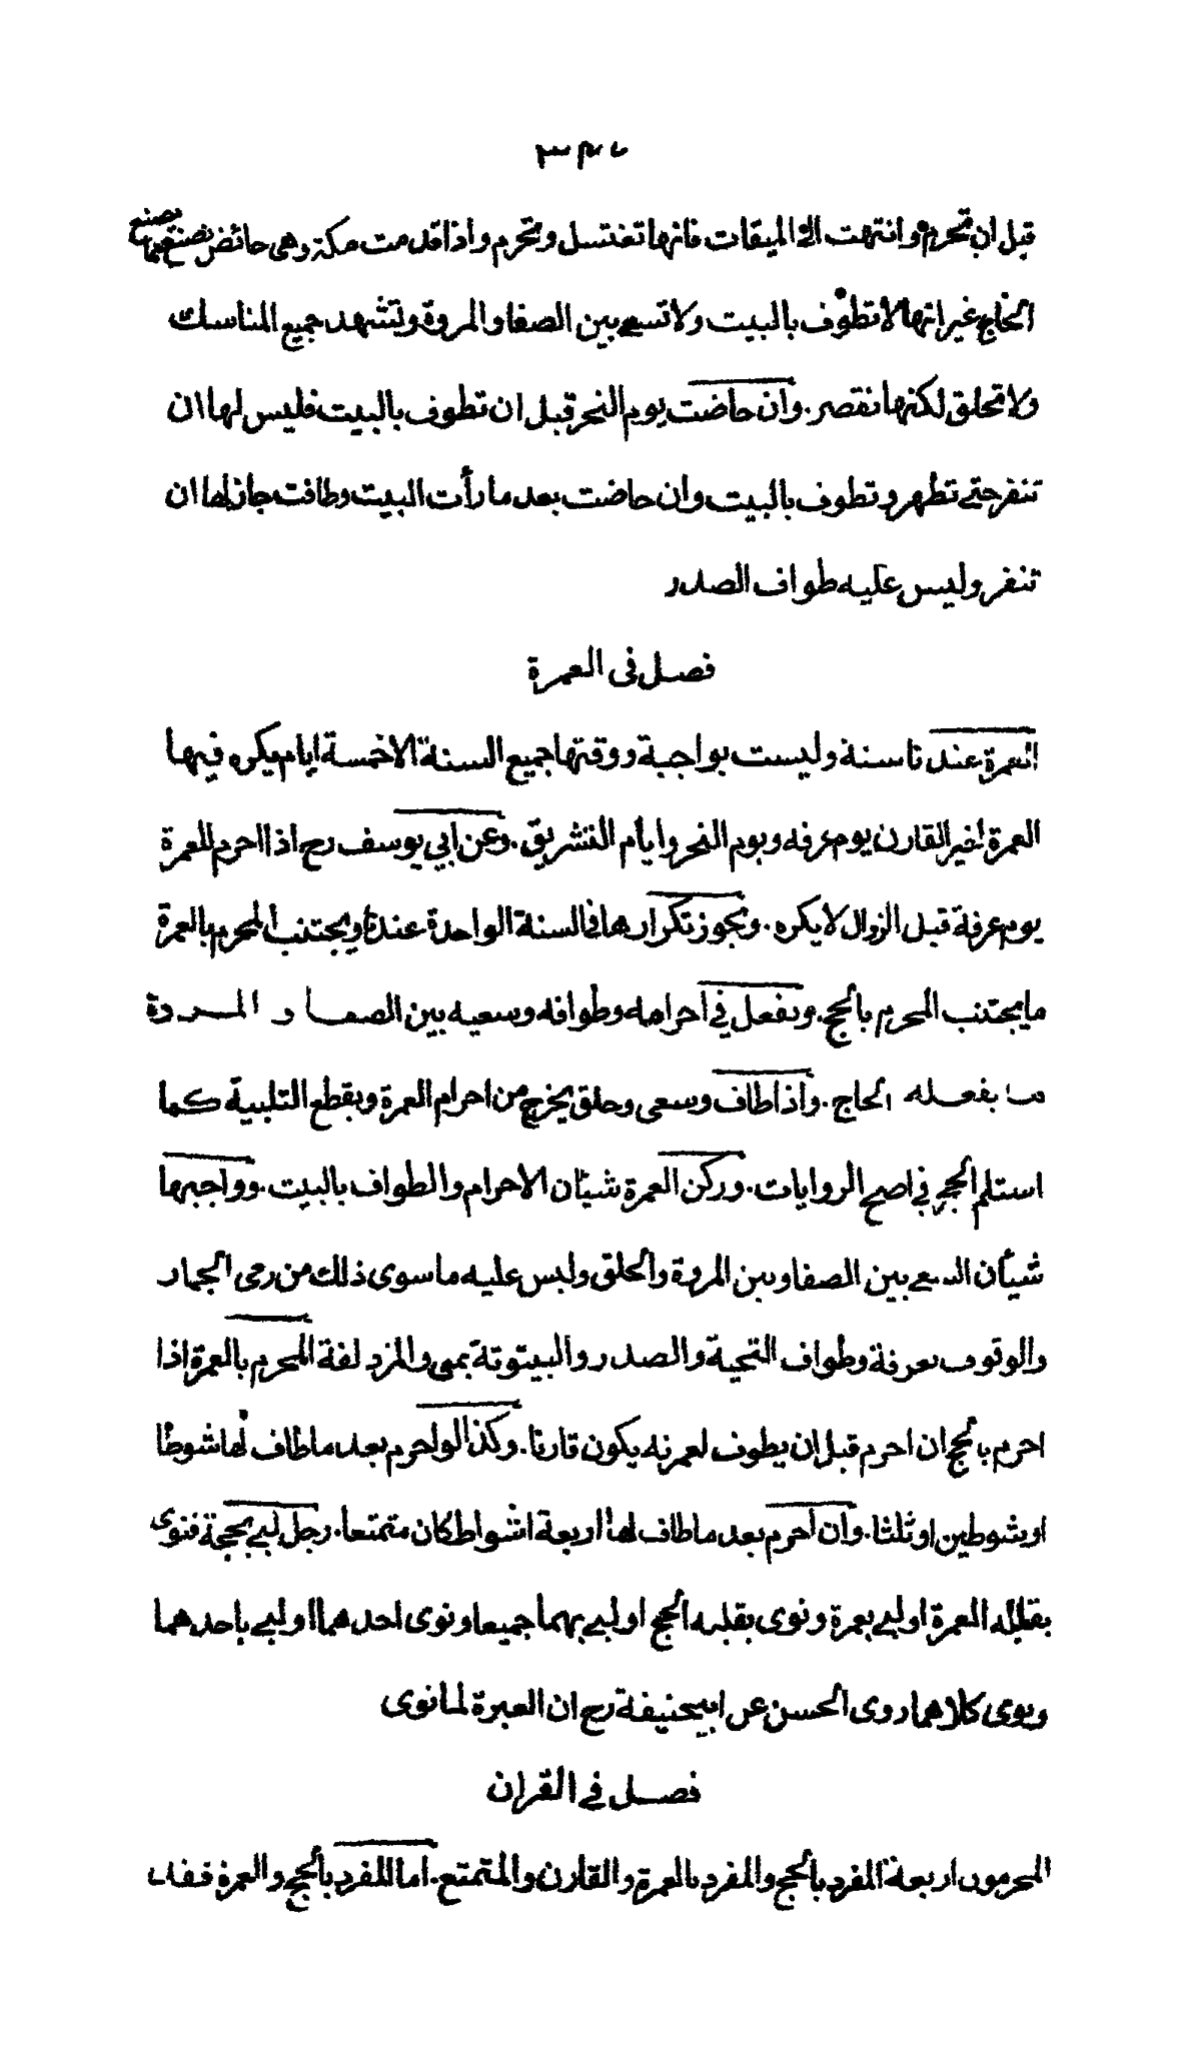 قبل ان تحرم وانتهت الى الميقات فانها تغتسل وتحرم واذا قدمت مكة وهى حائض تصنع كما يصنع
الحاج غير انها لا تطوف بالبيت ولا تسعى بين الصفا والمروة وتشهد جميع المناسك
ولا تحلق لكنها تقصر. وان حاضت يوم النحر قبل ان تطوف بالبيت فليس لها ان
تنفر حتى تطهر وتطوف بالبيت وان حاضت بعد ما رأت البيت وطافت جاز لها ان
تنفر وليس عليه طواف الصدر
فصل فى العمرة
العمرة عندنا سنة وليست بواجبة ووقتها جميع السنة الا خمسة ايام يكره فيها
العمرة لغير القارن يوم عرفه ويوم النحر وايام التشريق. وعن ابي يوسف رح اذا احرم للعمرة
يوم عرفة قبل الزوال لا يكره. ويجوز تكرارها فى السنة الواحدة عندنا ويجتنب المحرم بالعمرة
ما يجتنب المحرم بالحج. ويفعل في احرامه وطوافه وسعيه بين الصفا و المروة
ما يفعله الحاج. واذا طاف وسعى وحلق يخرج من احرام العمرة ويقطع التلبية كما
استلم الحجر في اصح الروايات. وركن العمرة شيئان الاحرام والطواف بالبيت. وواجبها
شيأن السعى بين الصفا وبين المروة والحلق وليس عليه ما سوى ذلك من رمى الجمار
والوقوف بعرفة وطواف التحية والصدر والبيتوتة بمنى والمزدلفة المحرم بالعمرة اذا
احرم بالحج ان احرم قبل ان يطوف لعمرته يكون قارنا. وكذا لو احرم بعد ما طاف لها شوطا
او شوطين او ثلثا. وان احرم بعد ما طاف لها اربعة اشواط كان متمتعا. رجل لبى بحجة فنوى
بقلبه العمرة او لبى بعمرة ونوى بقلبه الحج او لبى بهما جميعا ونوى احدهما او لبى باحدهما
ونوى كلاهما روى الحسن عن ابيحنيفة رح ان العبرة لما نوى
فصل في القران
المحرمون اربعة المفرد بالحج والمفرد بالعمرة والقارن والمتمتع. اما المفرد بالحج والعمرة فقد